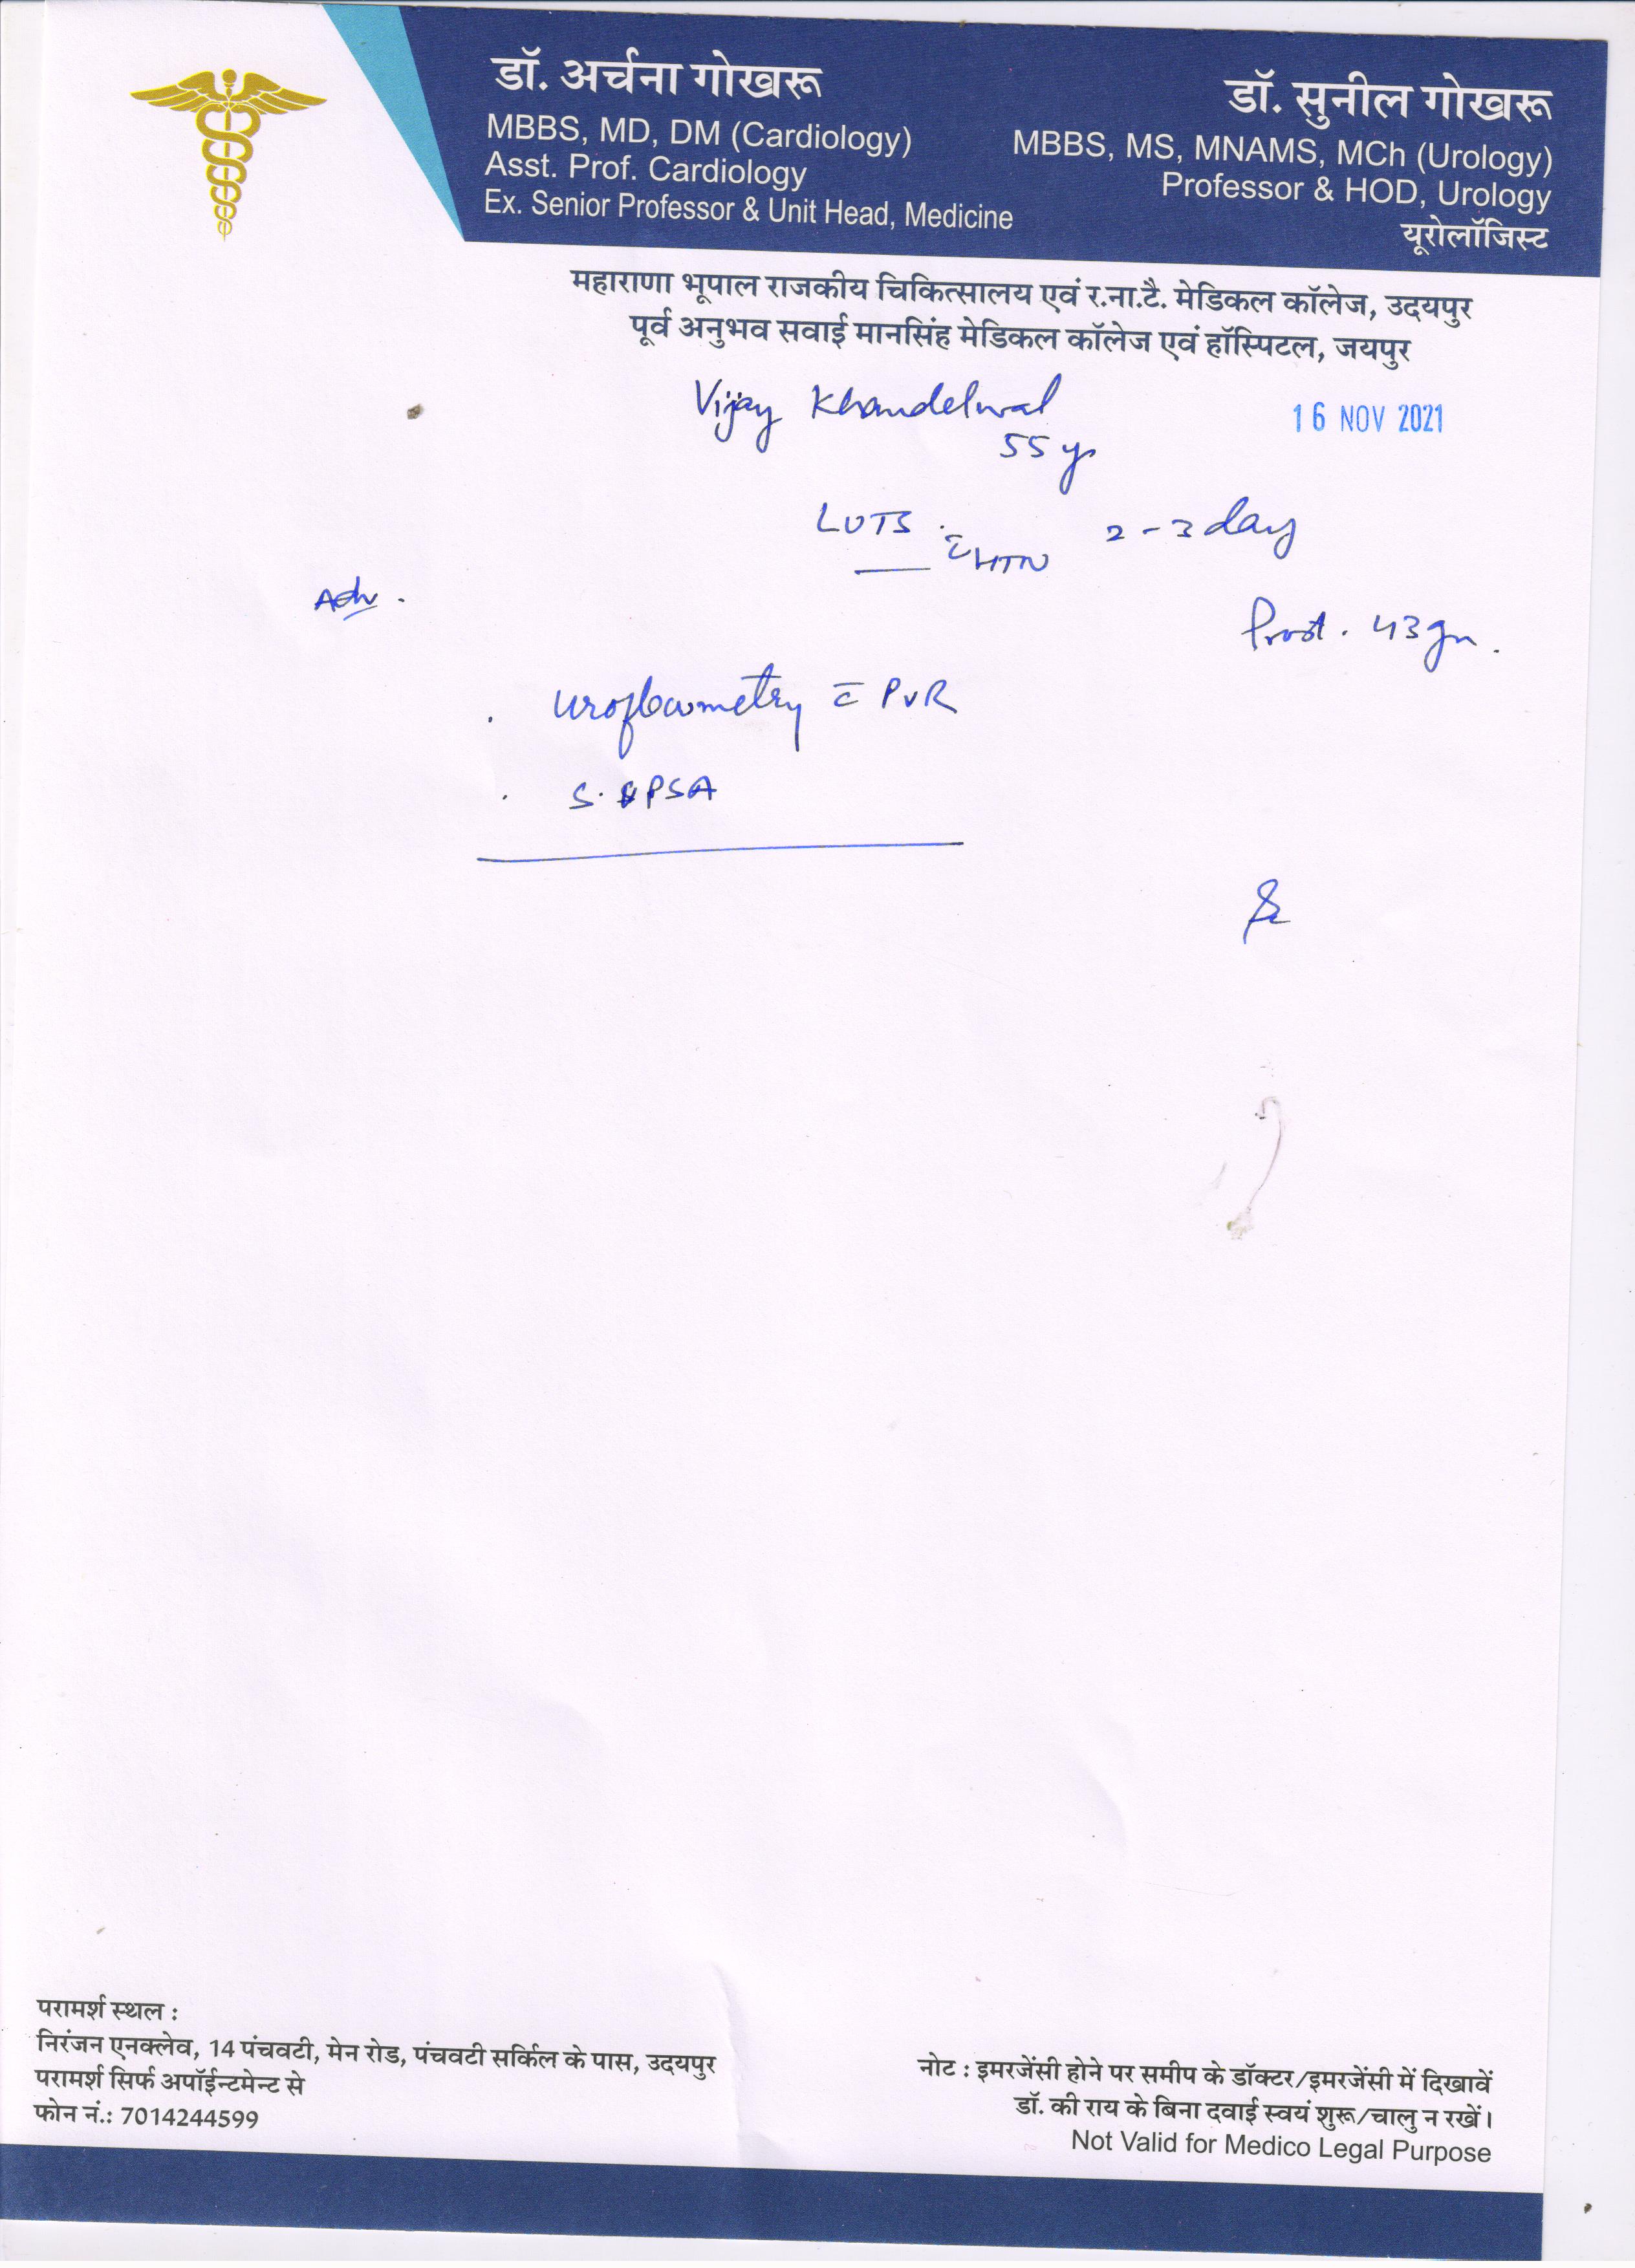 डॉ. अर्चना गोखरू
MBBS, MD, DM (Cardiology)
Asst. Prof. Cardiology
Ex. Senior Professor & Unit Head, Medicine
डॉ. सुनील गोखरू
MBBS, MS, MNAMS, MCh (Urology)
Professor & HOD, Urology
यूरोलॉजिस्ट
महाराणा भूपाल राजकीय चिकित्सालय एवं र.ना.टै. मेडिकल कॉलेज, उदयपुर
पूर्व अनुभव सवाई मानसिंह मेडिकल कॉलेज एवं हॉस्पिटल, जयपुर
Vijay Khandelwal
16 NOV 2021
55 yr
LUTS c̄ HTN 2-3 day
Adv.
Prost. 43 gm.
. Uroflowmetry c̄ PVR
. S. PSA
परामर्श स्थल :
निरंजन एनक्लेव, 14 पंचवटी, मेन रोड, पंचवटी सर्किल के पास, उदयपुर
परामर्श सिर्फ अपॉईन्टमेन्ट से
फोन नं.: 7014244599
नोट : इमरजेंसी होने पर समीप के डॉक्टर/इमरजेंसी में दिखावें
डॉ. की राय के बिना दवाई स्वयं शुरू/चालु न रखें।
Not Valid for Medico Legal Purpose